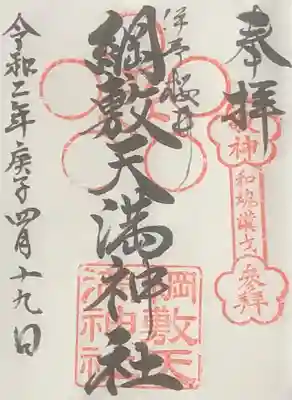 奉拝
神
和魂漢才
参拝
伊予桜井
綱敷天満神社
綱敷天満神社
令和二年庚子四月十九日